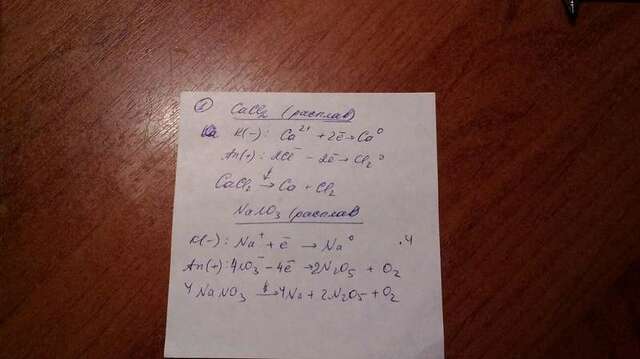 ① CaCl₂ (расплав)
K(-): Ca²⁺ + 2ē → Ca⁰
An(+): 2Cl⁻ - 2ē → Cl₂⁰
CaCl₂ → Ca + Cl₂
NaNO₃ (расплав
K(-): Na⁺ + ē → Na⁰ ·4
An(+): 4NO₃⁻ - 4ē → 2N₂O₅ + O₂
4NaNO₃ → 4Na + 2N₂O₅ + O₂